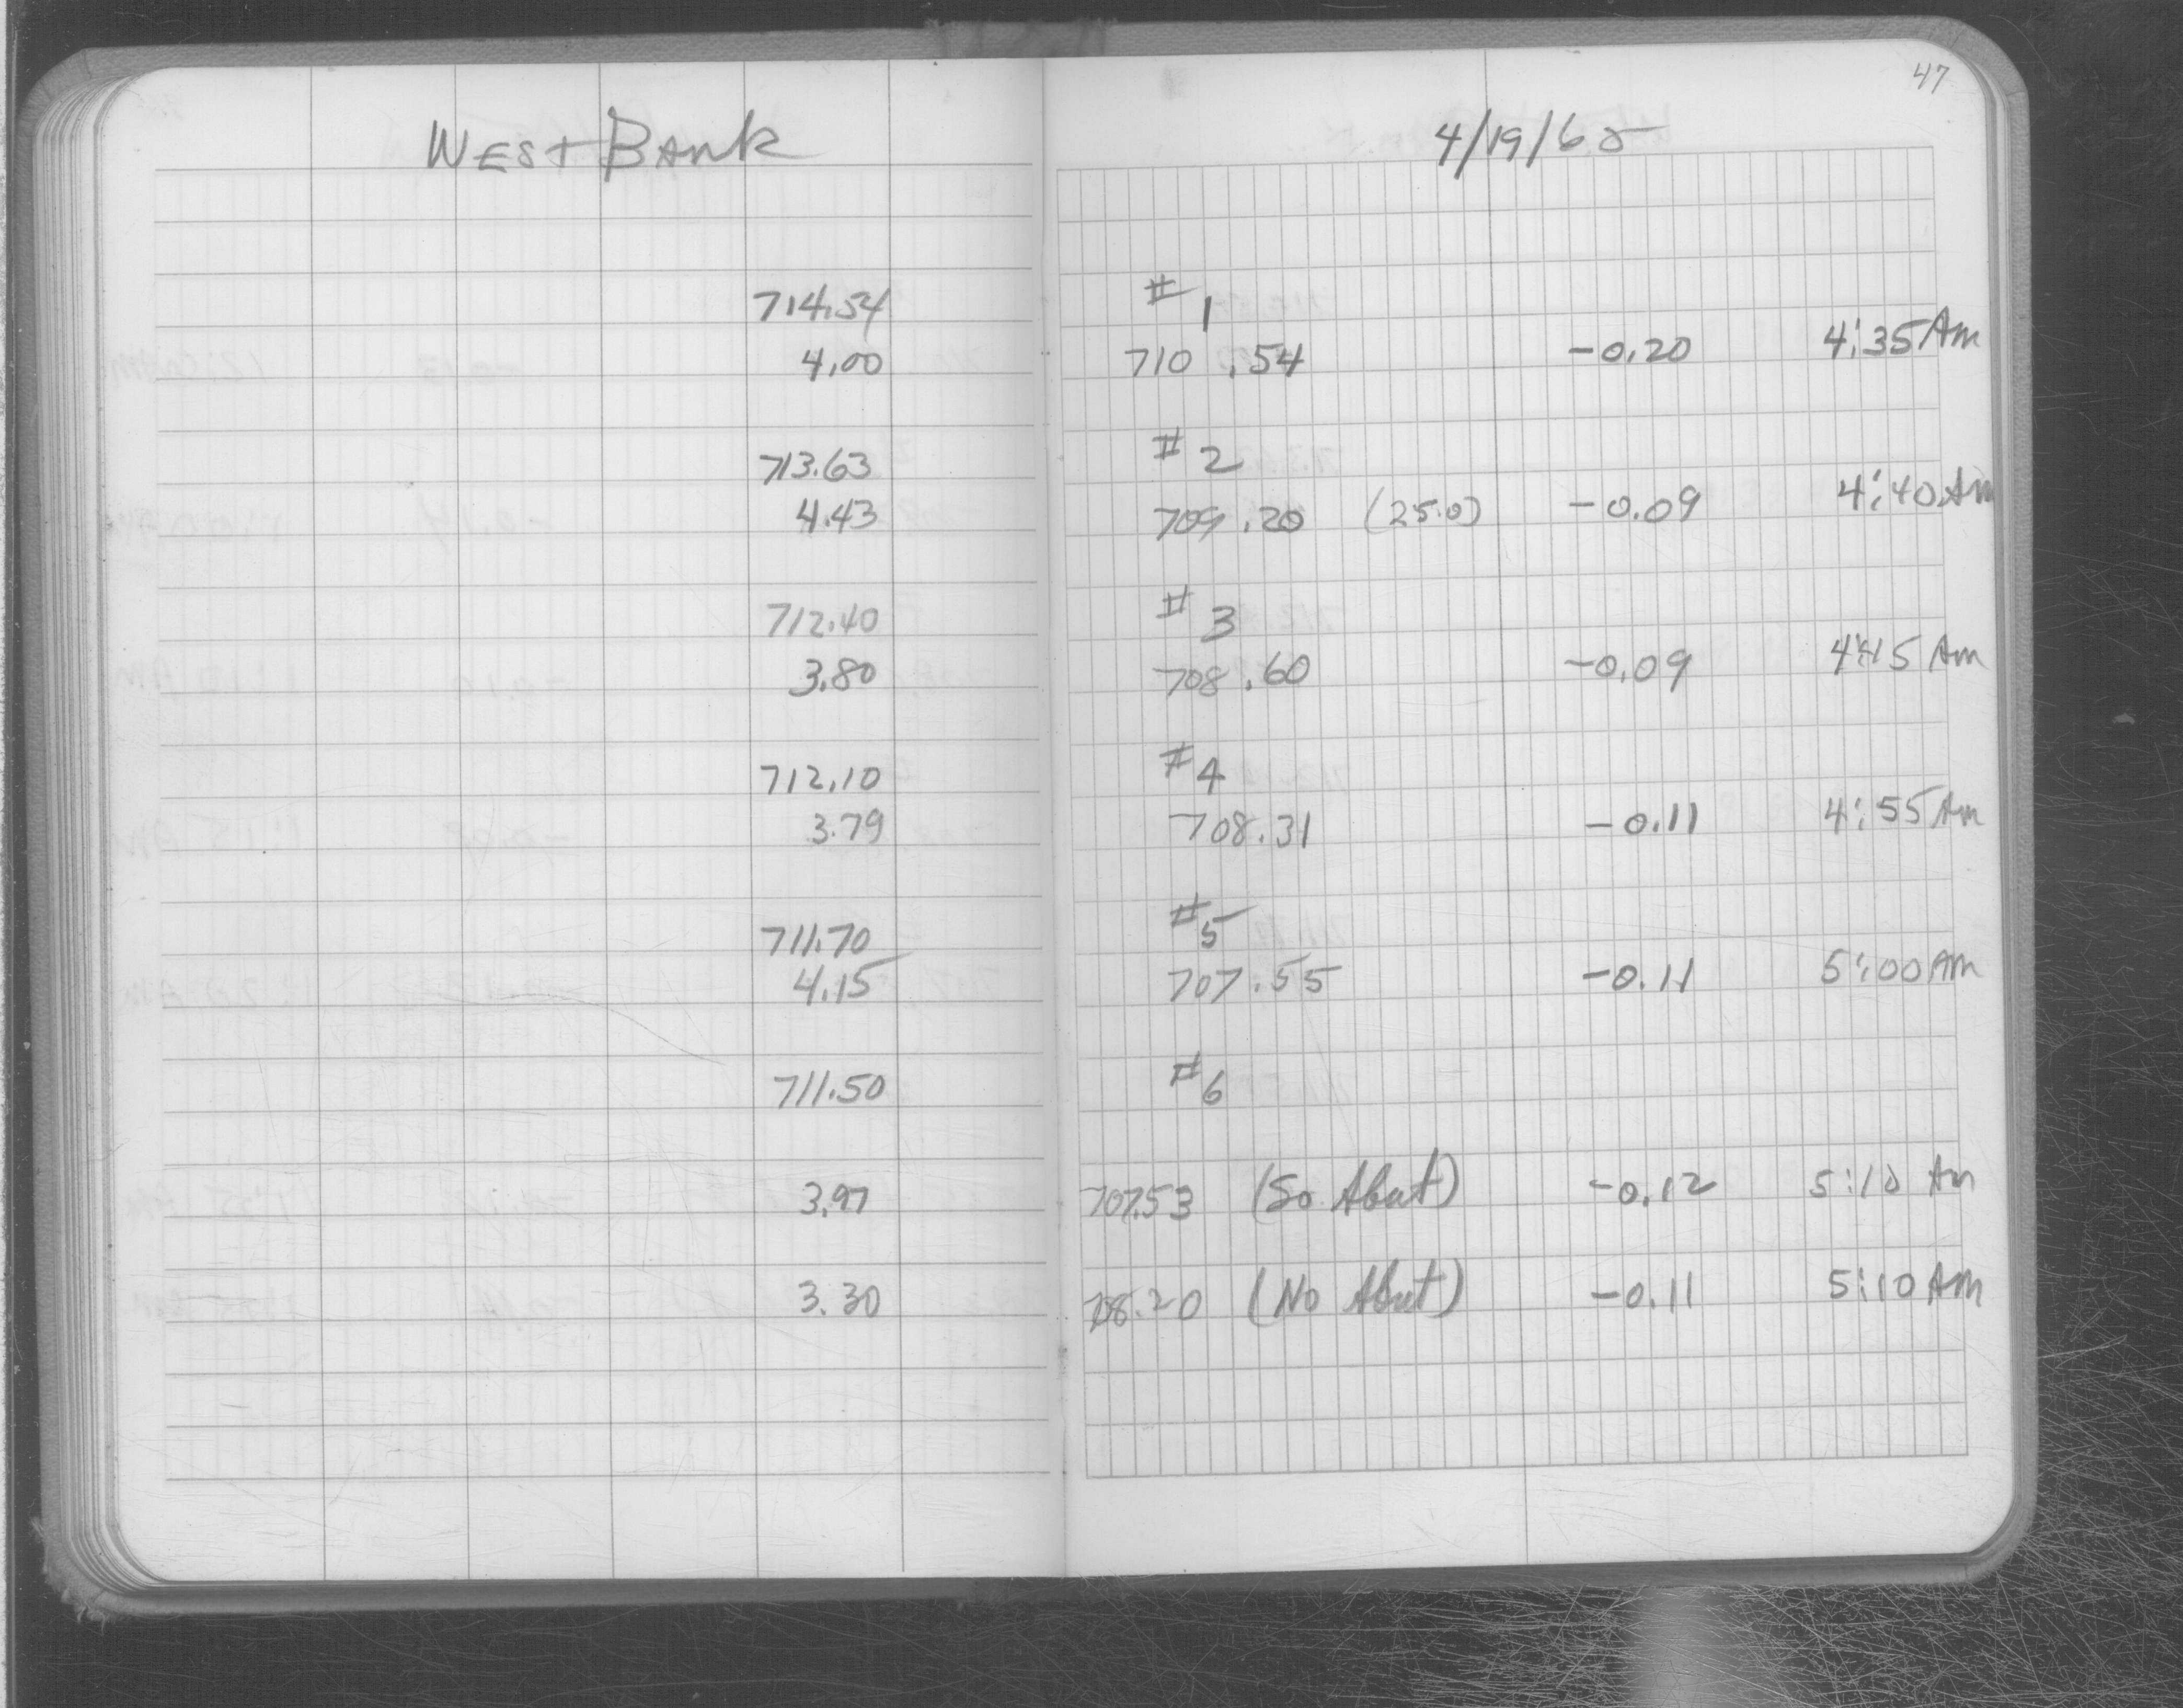 47
West Bank 4/19/65
714.54 #1
4.00 710.54 -0.20 4:35 Am
713.63 #2
4.43 709.20 (25.0) -0.09 4:40 Am
712.40 #3
3.80 708.60 -0.09 4:45 Am
712.10 #4
3.79 708.31 -0.11 4:55 Am
711.70 #5
4.15 707.55 -0.11 5:00 AM
711.50 #6
3.97 707.53 (So Abut) -0.12 5:10 Am
3.30 708.20 (No Abut) -0.11 5:10 Am